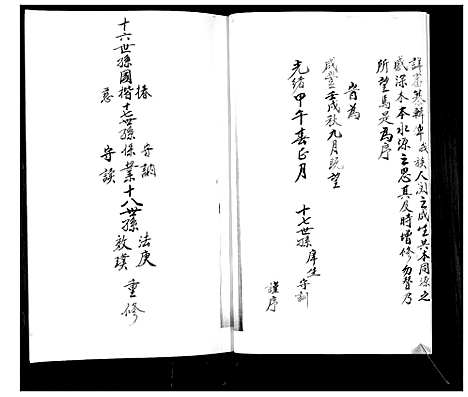 詳為募輯牟成族人閱之咸生共本同源之
感深木本水源之思其及時增修勿替乃
所望焉是為序
旹為
咸豐壬戌秋九月既望
光緒甲午春正月
十七世孫庠生守訓
謹序
十六世孫國椿
楷
慈
十七世孫保業
守訥
守謨
十八世孫
法庚
效璞
重修